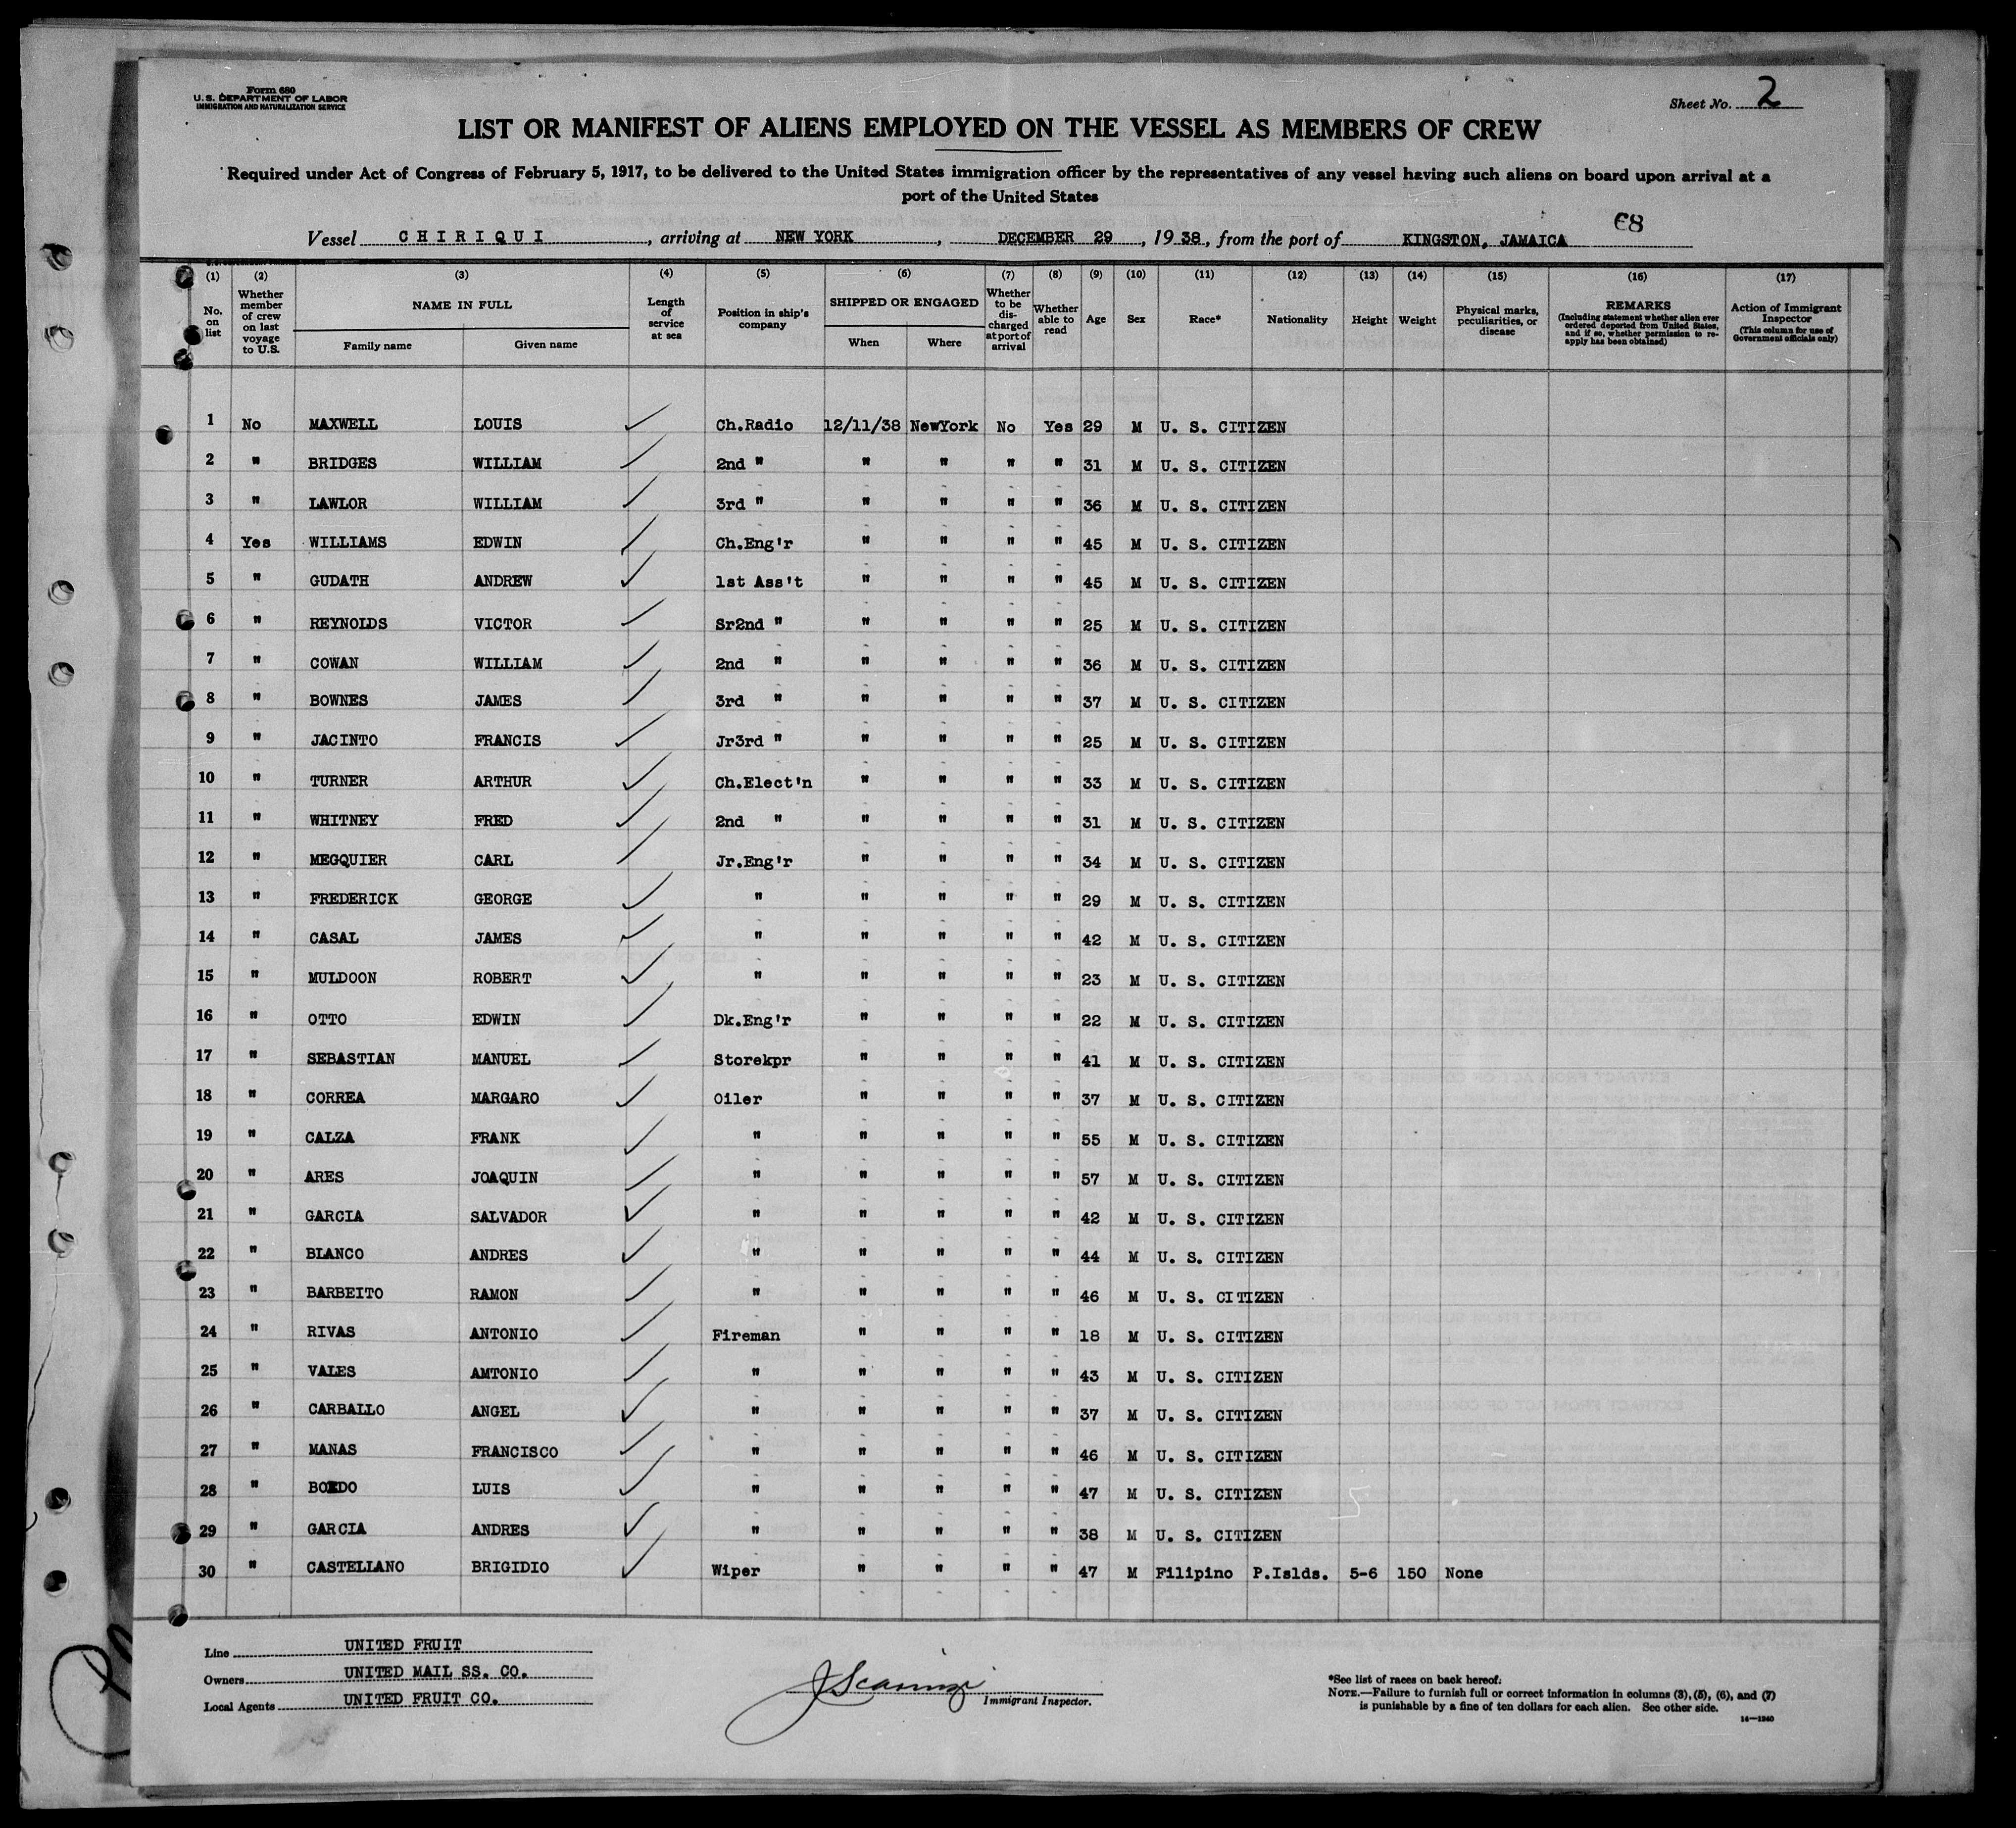 Form 680
U. S. DEPARTMENT OF LABOR
IMMIGRATION AND NATURALIZATION SERVICE
Sheet No. 2
LIST OR MANIFEST OF ALIENS EMPLOYED ON THE VESSEL AS MEMBERS OF CREW
Required under Act of Congress of February 5, 1917, to be delivered to the United States immigration officer by the representatives of any vessel having such aliens on board upon arrival at a
port of the United States
68
Vessel CHIRIQUI, arriving at NEW YORK, DECEMBER 29, 1938, from the port of KINGSTON, JAMAICA
(1) (2) (3) (4) (5) (6) (7) (8) (9) (10) (11) (12) (13) (14) (15) (16) (17)
No. on list | Whether member of crew on last voyage to U.S. | NAME IN FULL Family name Given name | Length of service at sea | Position in ship's company | SHIPPED OR ENGAGED When Where | Whether to be discharged at port of arrival | Whether able to read | Age | Sex | Race* | Nationality | Height | Weight | Physical marks, peculiarities, or disease | REMARKS (Including statement whether alien ever ordered deported from United States, and if so, whether permission to reapply has been obtained) | Action of Immigrant Inspector (This column for use of Government officials only)
1 No MAXWELL LOUIS Ch.Radio 12/11/38 NewYork No Yes 29 M U. S. CITIZEN
2 " BRIDGES WILLIAM 2nd " " " " " 31 M U. S. CITIZEN
3 " LAWLOR WILLIAM 3rd " " " " " 36 M U. S. CITIZEN
4 Yes WILLIAMS EDWIN Ch.Eng'r " " " " 45 M U. S. CITIZEN
5 " GUDATH ANDREW 1st Ass't " " " " 45 M U. S. CITIZEN
6 " REYNOLDS VICTOR Sr2nd " " " " " 25 M U. S. CITIZEN
7 " COWAN WILLIAM 2nd " " " " " 36 M U. S. CITIZEN
8 " BOWNES JAMES 3rd " " " " " 37 M U. S. CITIZEN
9 " JACINTO FRANCIS Jr3rd " " " " " 25 M U. S. CITIZEN
10 " TURNER ARTHUR Ch.Elect'n " " " " 33 M U. S. CITIZEN
11 " WHITNEY FRED 2nd " " " " " 31 M U. S. CITIZEN
12 " MEGQUIER CARL Jr.Eng'r " " " " 34 M U. S. CITIZEN
13 " FREDERICK GEORGE " " " " " 29 M U. S. CITIZEN
14 " CASAL JAMES " " " " " 42 M U. S. CITIZEN
15 " MULDOON ROBERT " " " " " 23 M U. S. CITIZEN
16 " OTTO EDWIN Dk.Eng'r " " " " 22 M U. S. CITIZEN
17 " SEBASTIAN MANUEL Storekpr " " " " 41 M U. S. CITIZEN
18 " CORREA MARGARO Oiler " " " " 37 M U. S. CITIZEN
19 " CALZA FRANK " " " " " 55 M U. S. CITIZEN
20 " ARES JOAQUIN " " " " " 57 M U. S. CITIZEN
21 " GARCIA SALVADOR " " " " " 42 M U. S. CITIZEN
22 " BLANCO ANDRES " " " " " 44 M U. S. CITIZEN
23 " BARBEITO RAMON " " " " " 46 M U. S. CITIZEN
24 " RIVAS ANTONIO Fireman " " " " 18 M U. S. CITIZEN
25 " VALES AMTONIO " " " " " 43 M U. S. CITIZEN
26 " CARBALLO ANGEL " " " " " 37 M U. S. CITIZEN
27 " MANAS FRANCISCO " " " " " 46 M U. S. CITIZEN
28 " BOEDO LUIS " " " " " 47 M U. S. CITIZEN
29 " GARCIA ANDRES " " " " " 38 M U. S. CITIZEN
30 " CASTELLANO BRIGIDIO Wiper " " " " 47 M Filipino P.Islds. 5-6 150 None
Line UNITED FRUIT
Owners UNITED MAIL SS. CO.
Local Agents UNITED FRUIT CO.
Immigrant Inspector.
*See list of races on back hereof.
NOTE.—Failure to furnish full or correct information in columns (3), (5), (6), and (7)
is punishable by a fine of ten dollars for each alien. See other side.
14—1240